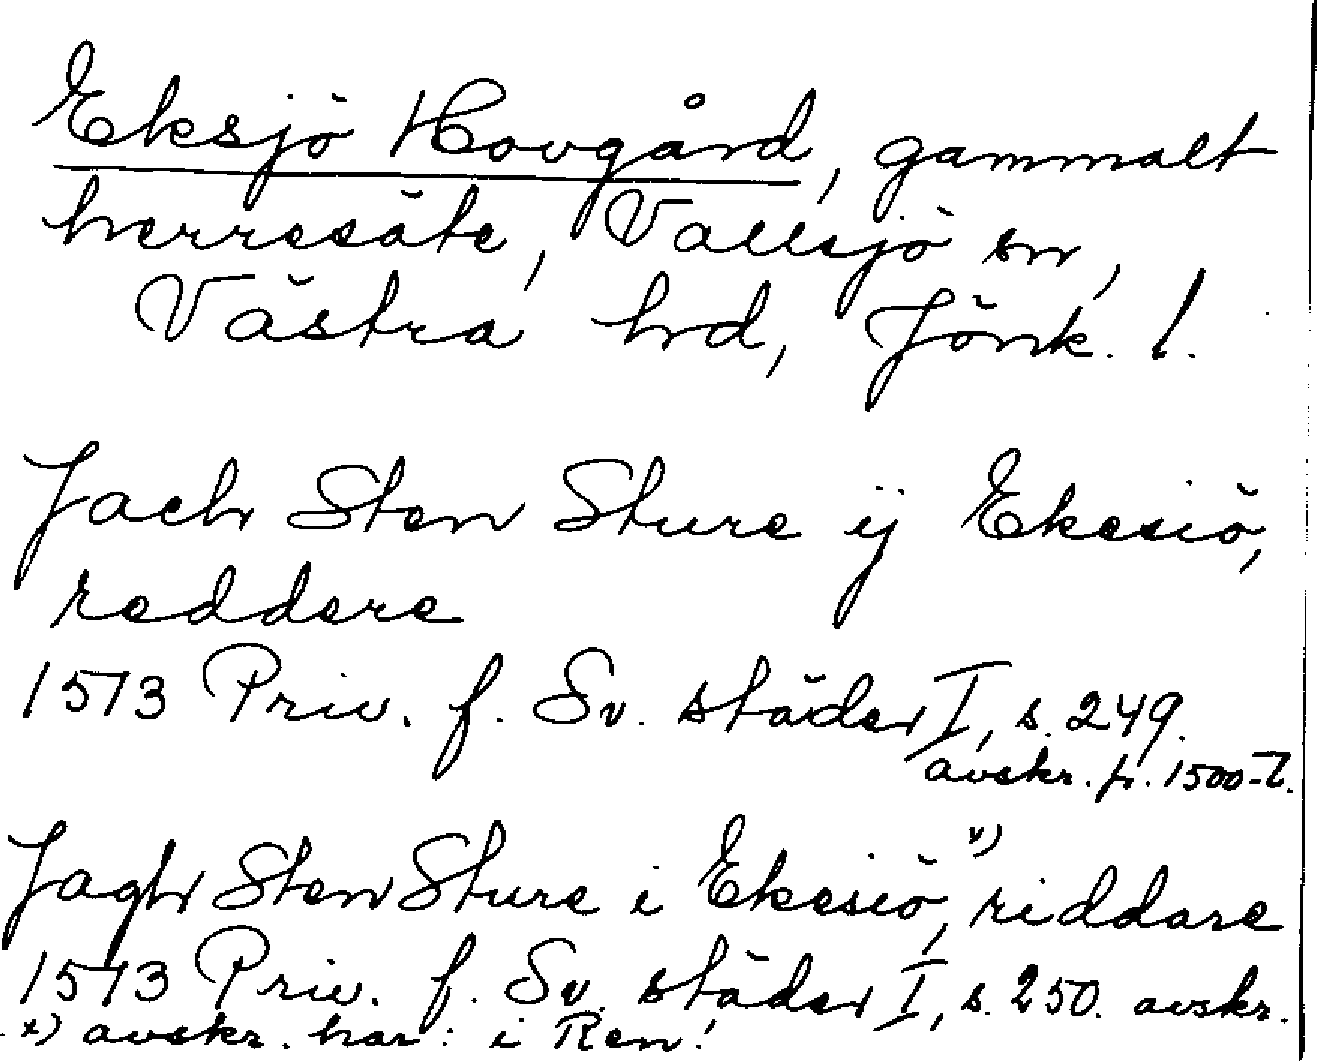 Eksjö Hovgård, gammalt
herresäte, Vallsjö sn,
Västra hrd, Jönk. l.
Jach Sten Sture ij Ekesiö,
reddere
1573 Priv. f. Sv. städer I, s. 249.
avskr. fr. 1500-t.
Jagh Sten Sture i Ekesiö, x) riddare
1573 Priv. f. Sv. städer I, s. 250. avskr.
x) avskr. har: i Ren!